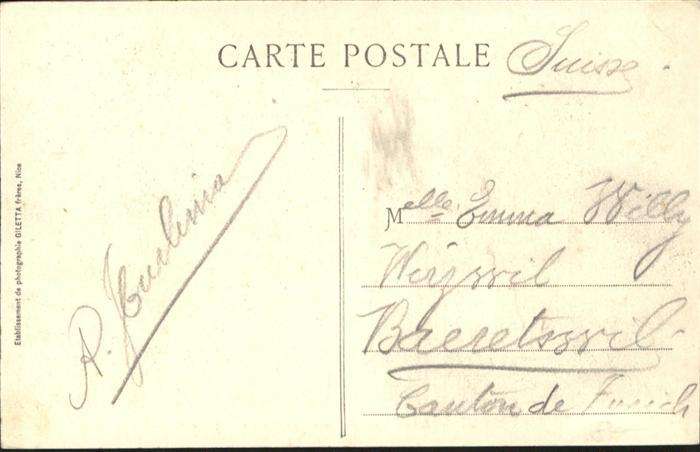 CARTE POSTALE
Suisse
Etablissement de photographie GILETTA frères, Nice
R.
Melle Emma Willy
Baeretswil
Canton de Zurich